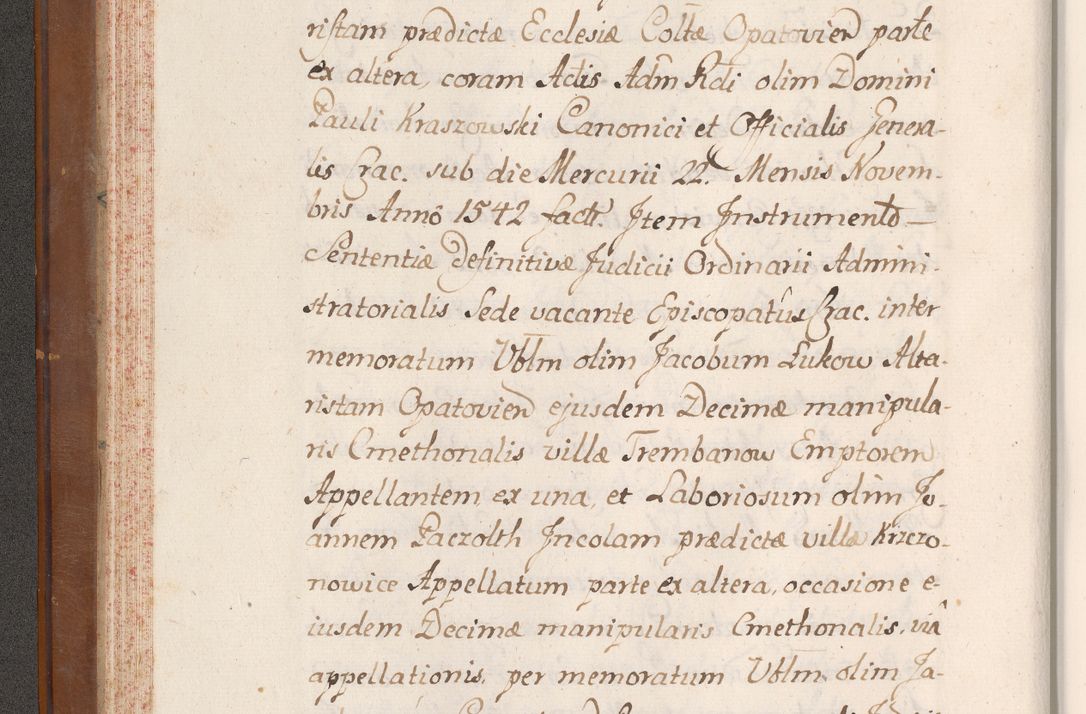 ristam prædictæ Ecclesiæ Coltæ Opatovien parte
ex altera, coram Actis Adm Rdi olim Domini
Pauli Kraszowski Canonici et Officialis Genera-
lis Crac. sub die Mercurii 22. Mensis Novem-
bris Annô 1542 fact. Item Instrumento
Sententiæ definitivæ Judicii Ordinarii Admini-
stratorialis Sede vacante Episcopatûs Crac. inter
memoratum Vblm olim Jacobum Łukow Alta-
ristam Opatovien ejusdem Decimæ manipula-
ris Cmethonalis villæ Trembanow Emptorem
Appellantem ex una, et Laboriosum olim Jo-
annem Paczolth Incolam prædictæ villæ Krzczo-
nowice Appellatum parte ex altera, occasione e-
iusdem Decimæ manipularis Cmethonalis, viâ
appellationis, per memoratum Vblm olim Ja-